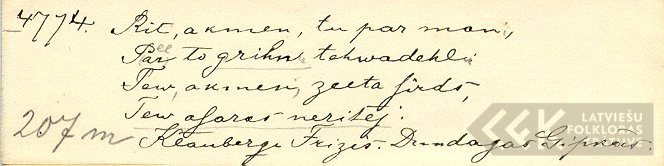 4774. Rit, akmen, tu par man,
Par to grihn tehwadehli
Tew, akmen, zeeta sirds,
Tew asaras neritej.
207 m
Klauberge Frizis. Dundagas Gipkās.
LATVIEŠU
FOLKLORAS
KRĀTUVE